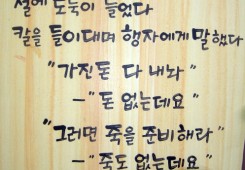 절에 도둑이 들었다
칼을 들이대며 행자에게 말했다
"가진돈 다 내놔"
-"돈 없는데요"
"그러면 죽을 준비해라"
-"죽도 없는데요"